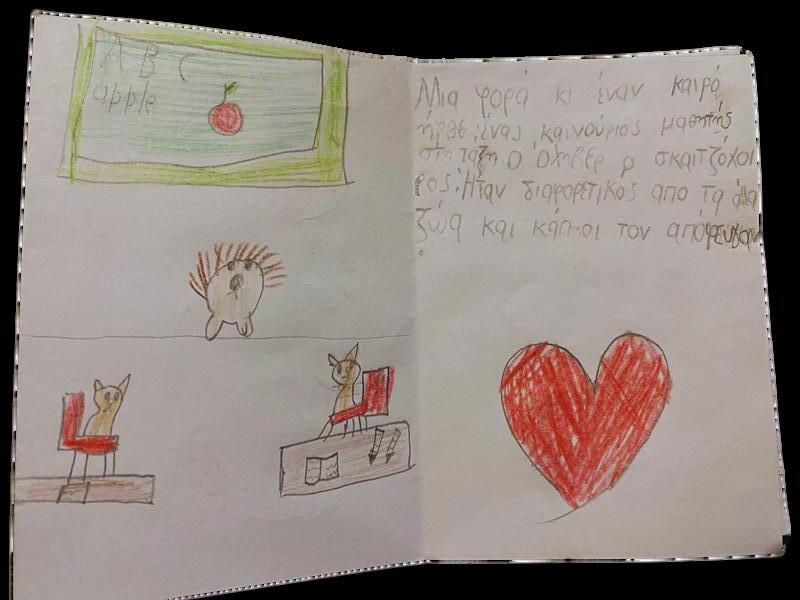 A B C
apple
Μια φορά κι έναν καιρό
ήρθε ένας καινούριος μαθητής
στη ταξη ο Όλιβερ ο σκαιτζόχοι
ρος. Ήταν διαφορετικος απο τα άλλα
ζώα και κάποιοι τον απόφευγαν
.